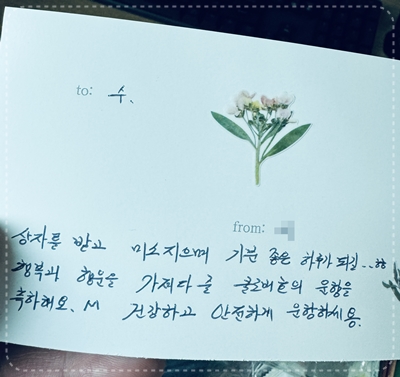 to: 수.
from:
상자를 받고 미소지으며 기분 좋은 하루가 되길..
행복과 행운을 가져다 줄 클로버호의 운항을
축하해요. M 건강하고 안전하게 운항하세용.